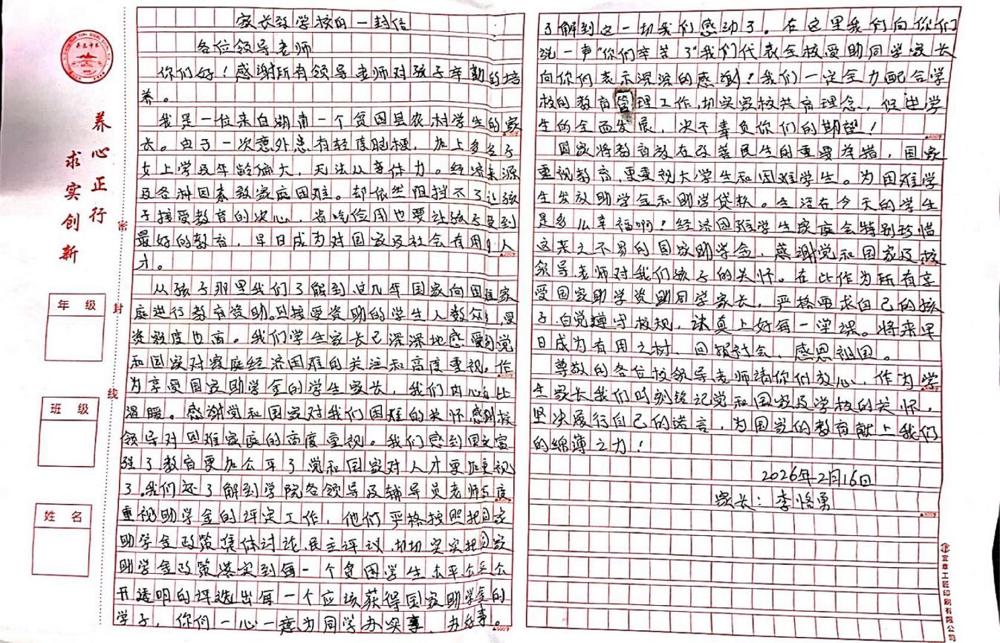 养心正行
求实创新
年级
班级
姓名
密
封
线
家长致学校的一封信
各位领导老师
你们好！感谢所有领导老师对孩子辛勤的培
养。
我是一位来自湖南一个贫困县农村学生的家
长。由于一次意外患有轻度脑梗，加上多名子
女上学及年龄偏大，无法从事体力。经济来源
及各种因素致家庭困难。却依然阻挡不了让孩
子接受教育的决心，省吃俭用也要让孩子受到
最好的教育，早日成为对国家及社会有用的人
才。
从孩子那里我们了解到这几年国家向困难家
庭进行教育资助。且接受资助的学生人数众，受
资额度也高。我们学生家长已深深地感受到党
和国家对家庭经济困难的关注和高度重视。作
为享受国家助学金的学生家长，我们内心无比
温暖。感谢党和国家对我们困难的关怀感谢校
领导对困难家庭的高度重视。我们感到国家富
强了教育更加公平了党和国家对人才更加重视
了。我们还了解到学院各领导及辅导员老师高度
重视助学金的评定工作，他们严格按照把国家
助学金政策集体讨论，民主评议，切切实实把国家
助学金政策落实到每一个贫困学生公平公正公
开透明的评选出每一个应该获得国家助学金的
学子，你们一心一意为同学办实事，办好事。
了解到这一切我们感动了。在这里我们向你们
说一声“你们辛苦了”我们代表全校受助同学家长
向你们表示深深的感谢！我们一定全力配合学
校的教育管理工作，切实家校共育理念，促进学
生的全面发展，决不辜负你们的期望！
国家将教育放在改善民生的重要举措，国家
重视教育，更重视大学生和困难学生。为困难学
生发放助学金和助学贷款。生活在今天的学生
是多么幸福啊！经济困难学生家庭会特别珍惜
这来之不易的国家助学金，感谢党和国家及校
领导老师对我们孩子的关怀。在此作为所有享
受国家助学资助同学家长，严格要求自己的孩
子，自觉遵守校规，认真上好每一学课。将来早
日成为有用之材，回报社会，感恩祖国。
尊敬的各位校领导老师请你们放心，作为学
生家长我们时刻铭记党和国家及学校的关怀，
坚决履行自己的诺言，为国家的教育献上我们
的绵薄之力！
2026年2月16日
家长：李恪勇
宜章工匠印刷有限公司